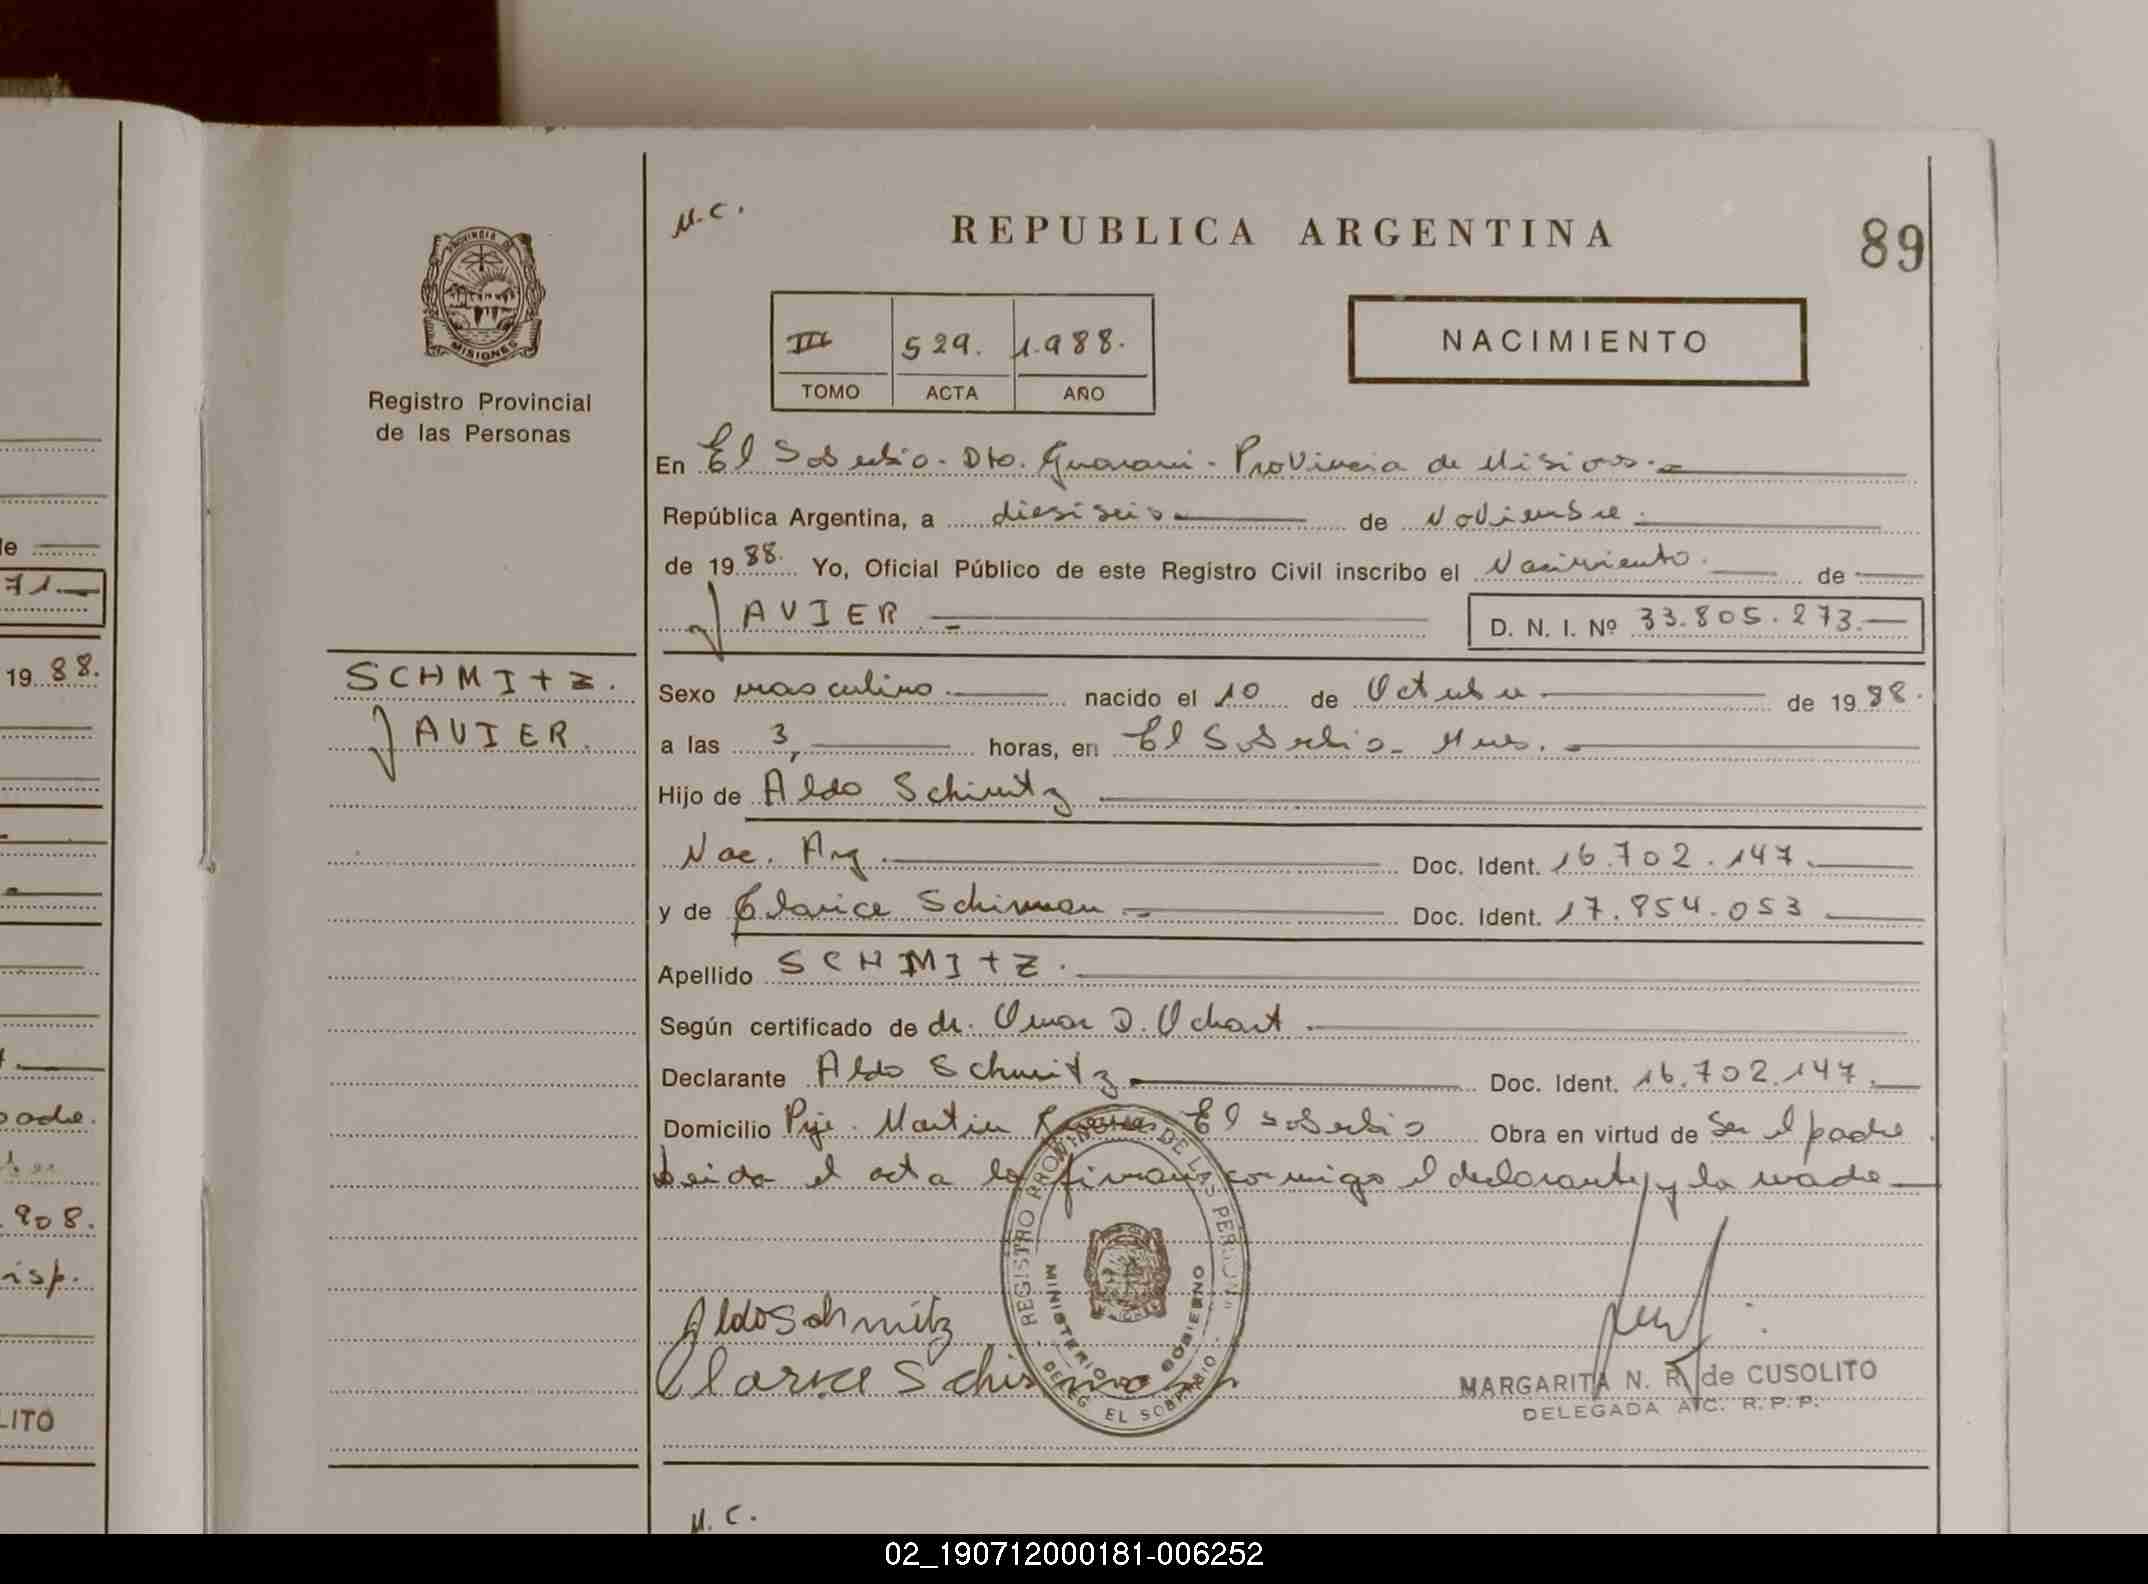 le
71.
1988.
padre.
908.
isp.
LITO
PROVINCIA DE
MISIONES
Registro Provincial
de las Personas
SCHMITZ.
JAVIER.
M.C.
REPUBLICA ARGENTINA
89
III 529. 1.988.
TOMO ACTA AÑO
NACIMIENTO
En El Soberbio - Dto. Guarani - Provincia de Misiones.-
República Argentina, a diesiseis de Noviembre.
de 1988. Yo, Oficial Público de este Registro Civil inscribo el Nacimiento. de
JAVIER D. N. I. Nº 33.805.273.
Sexo masculino. nacido el 10 de Octubre de 1988.
a las 3, horas, en El Soberbio - Mnes.
Hijo de Aldo Schmitz
Nac. Arg. Doc. Ident. 16.702.147.
y de Clarice Schirman Doc. Ident. 17.854.053
Apellido SCHMITZ.
Según certificado de dr. Omar D. Ochart.
Declarante Aldo Schmitz Doc. Ident. 16.702.147.
Domicilio Pje. Martin El Soberbio Obra en virtud de Ser el padre.
Leida el acta la firman conmigo el declarante y la madre
REGISTRO PROVINCIAL DE LAS PERSONAS
MINISTERIO DE GOBIERNO
DELEG. EL SOBERBIO
Aldo Schmitz
Clarice Schirman
MARGARITA N. R. de CUSOLITO
DELEGADA A/C. R.P.P.
M.C.
02_190712000181-006252